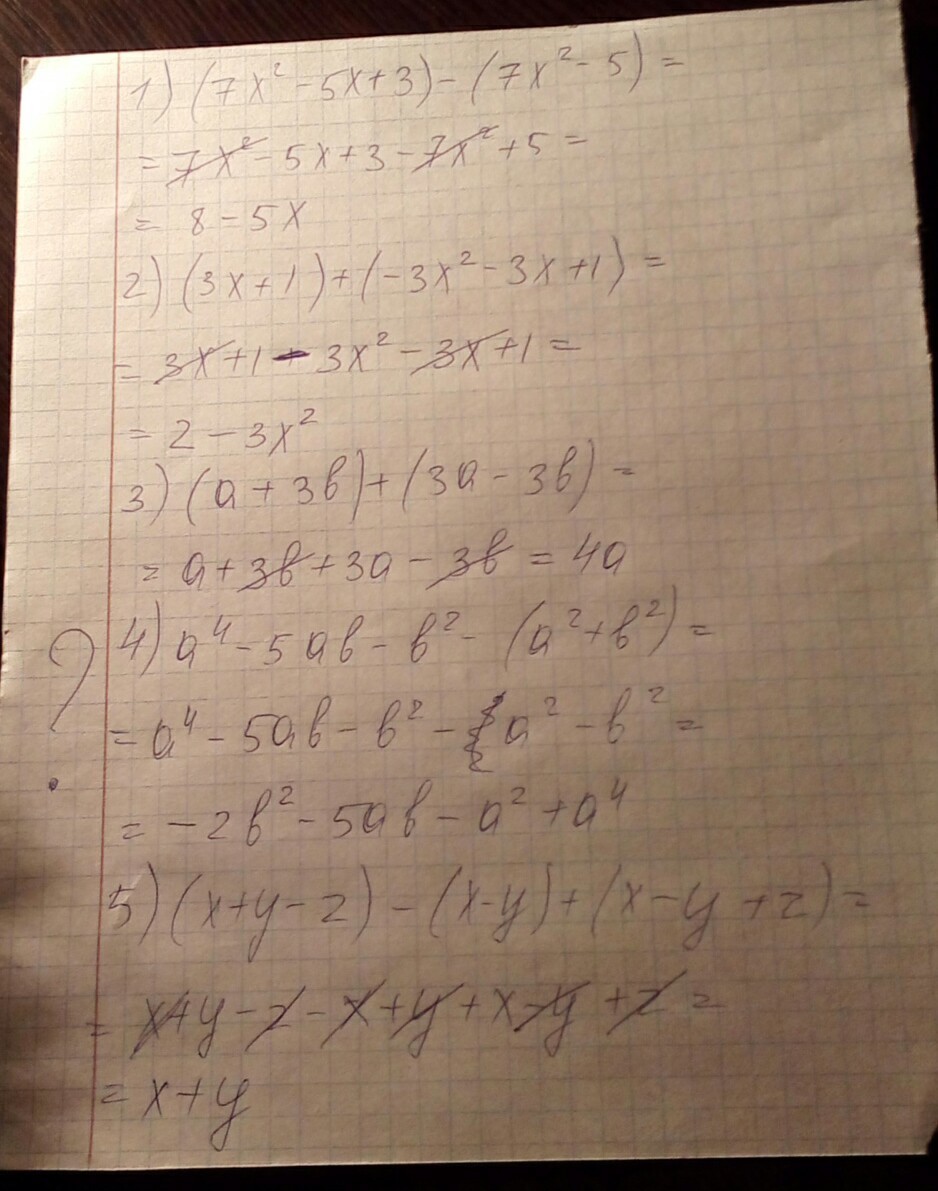 1) (7x² - 5x + 3) - (7x² - 5) =
= 7x² - 5x + 3 - 7x² + 5 =
= 8 - 5x
2) (3x + 1) + (-3x² - 3x + 1) =
= 3x + 1 - 3x² - 3x + 1 =
= 2 - 3x²
3) (a + 3b) + (3a - 3b) =
= a + 3b + 3a - 3b = 4a
? 4) a⁴ - 5ab - b² - (a² + b²) =
= a⁴ - 5ab - b² - a² - b² =
= -2b² - 5ab - a² + a⁴
5) (x + y - z) - (x - y) + (x - y + z) =
= x + y - z - x + y + x - y + z =
= x + y